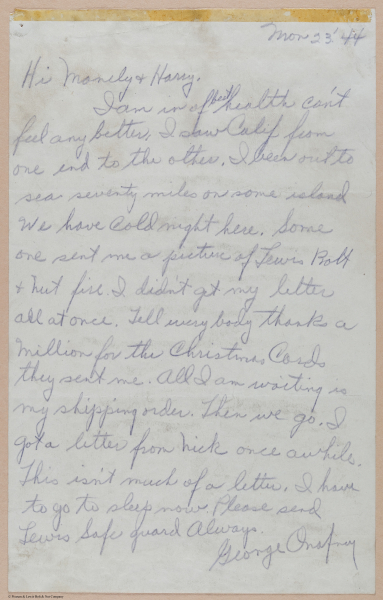 Mon 23 '44
Hi Monely & Harry.
I am in of best health can't
feel any better. I saw Calif from
one end to the other. I been out to
sea seventy miles on some island
We have Cold night here. Some
one sent me a picture of Lewis Bolt
& Nut fire. I didn't get my letter
all at once. Tell every body thanks a
million for the Christmas Cards
they sent me. All I am waiting is
my shipping order. Then we go. I
got a letter from Nick once awhile.
This isn't much of a letter. I have
to go to sleep now. Please send
Lewis Safe guard Always.
George